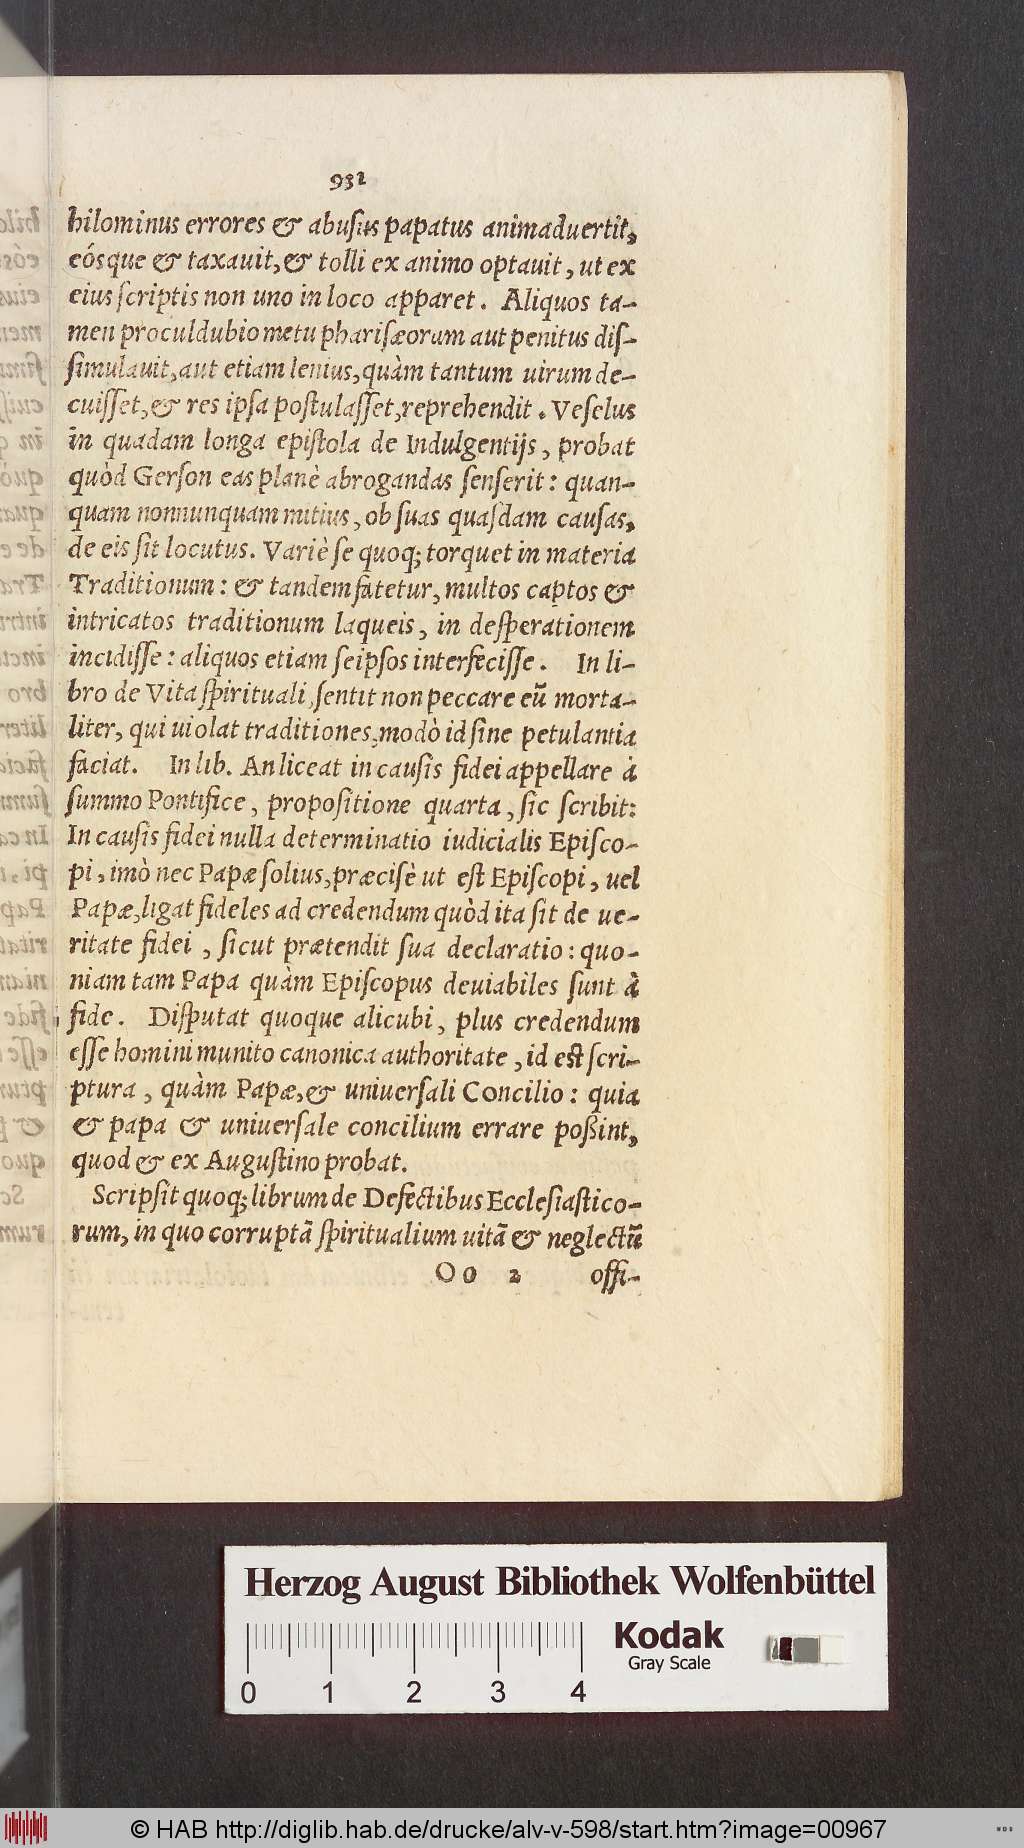 932
hilominus errores & abusus papatus animaduertit,
eósque & taxauit, & tolli ex animo optauit, ut ex
eius scriptis non uno in loco apparet. Aliquos ta-
men proculdubio metu pharisæorum aut penitus dis-
simulauit, aut etiam lenius, quàm tantum uirum de-
cuisset, & res ipsa postulasset, reprehendit. Veselus
in quadam longa epistola de Indulgentijs, probat
quòd Gerson eas planè abrogandas senserit: quan-
quam nonnunquam mitius, ob suas quasdam causas,
de eis sit locutus. Variè se quoq; torquet in materia
Traditionum: & tandem fatetur, multos captos &
intricatos traditionum laqueis, in desperationem
incidisse: aliquos etiam seipsos interfecisse. In li-
bro de Vita spirituali, sentit non peccare eũ morta-
liter, qui uiolat traditiones, modò id sine petulantia
faciat. In lib. An liceat in causis fidei appellare à
summo Pontifice, propositione quarta, sic scribit:
In causis fidei nulla determinatio iudicialis Episco-
pi, imò nec Papæ solius, præcisè ut est Episcopi, uel
Papæ, ligat fideles ad credendum quòd ita sit de ue-
ritate fidei, sicut prætendit sua declaratio: quo-
niam tam Papa quàm Episcopus deuiabiles sunt à
fide. Disputat quoque alicubi, plus credendum
esse homini munito canonica authoritate, id est scri-
ptura, quàm Papæ, & uniuersali Concilio: quia
& papa & uniuersale concilium errare poßint,
quod & ex Augustino probat.
Scripsit quoq; librum de Defectibus Ecclesiastico-
rum, in quo corruptã spiritualium uitã & neglectũ
Oo 2 offi-
Herzog August Bibliothek Wolfenbüttel
0 1 2 3 4
Kodak
Gray Scale
© HAB http://diglib.hab.de/drucke/alv-v-598/start.htm?image=00967